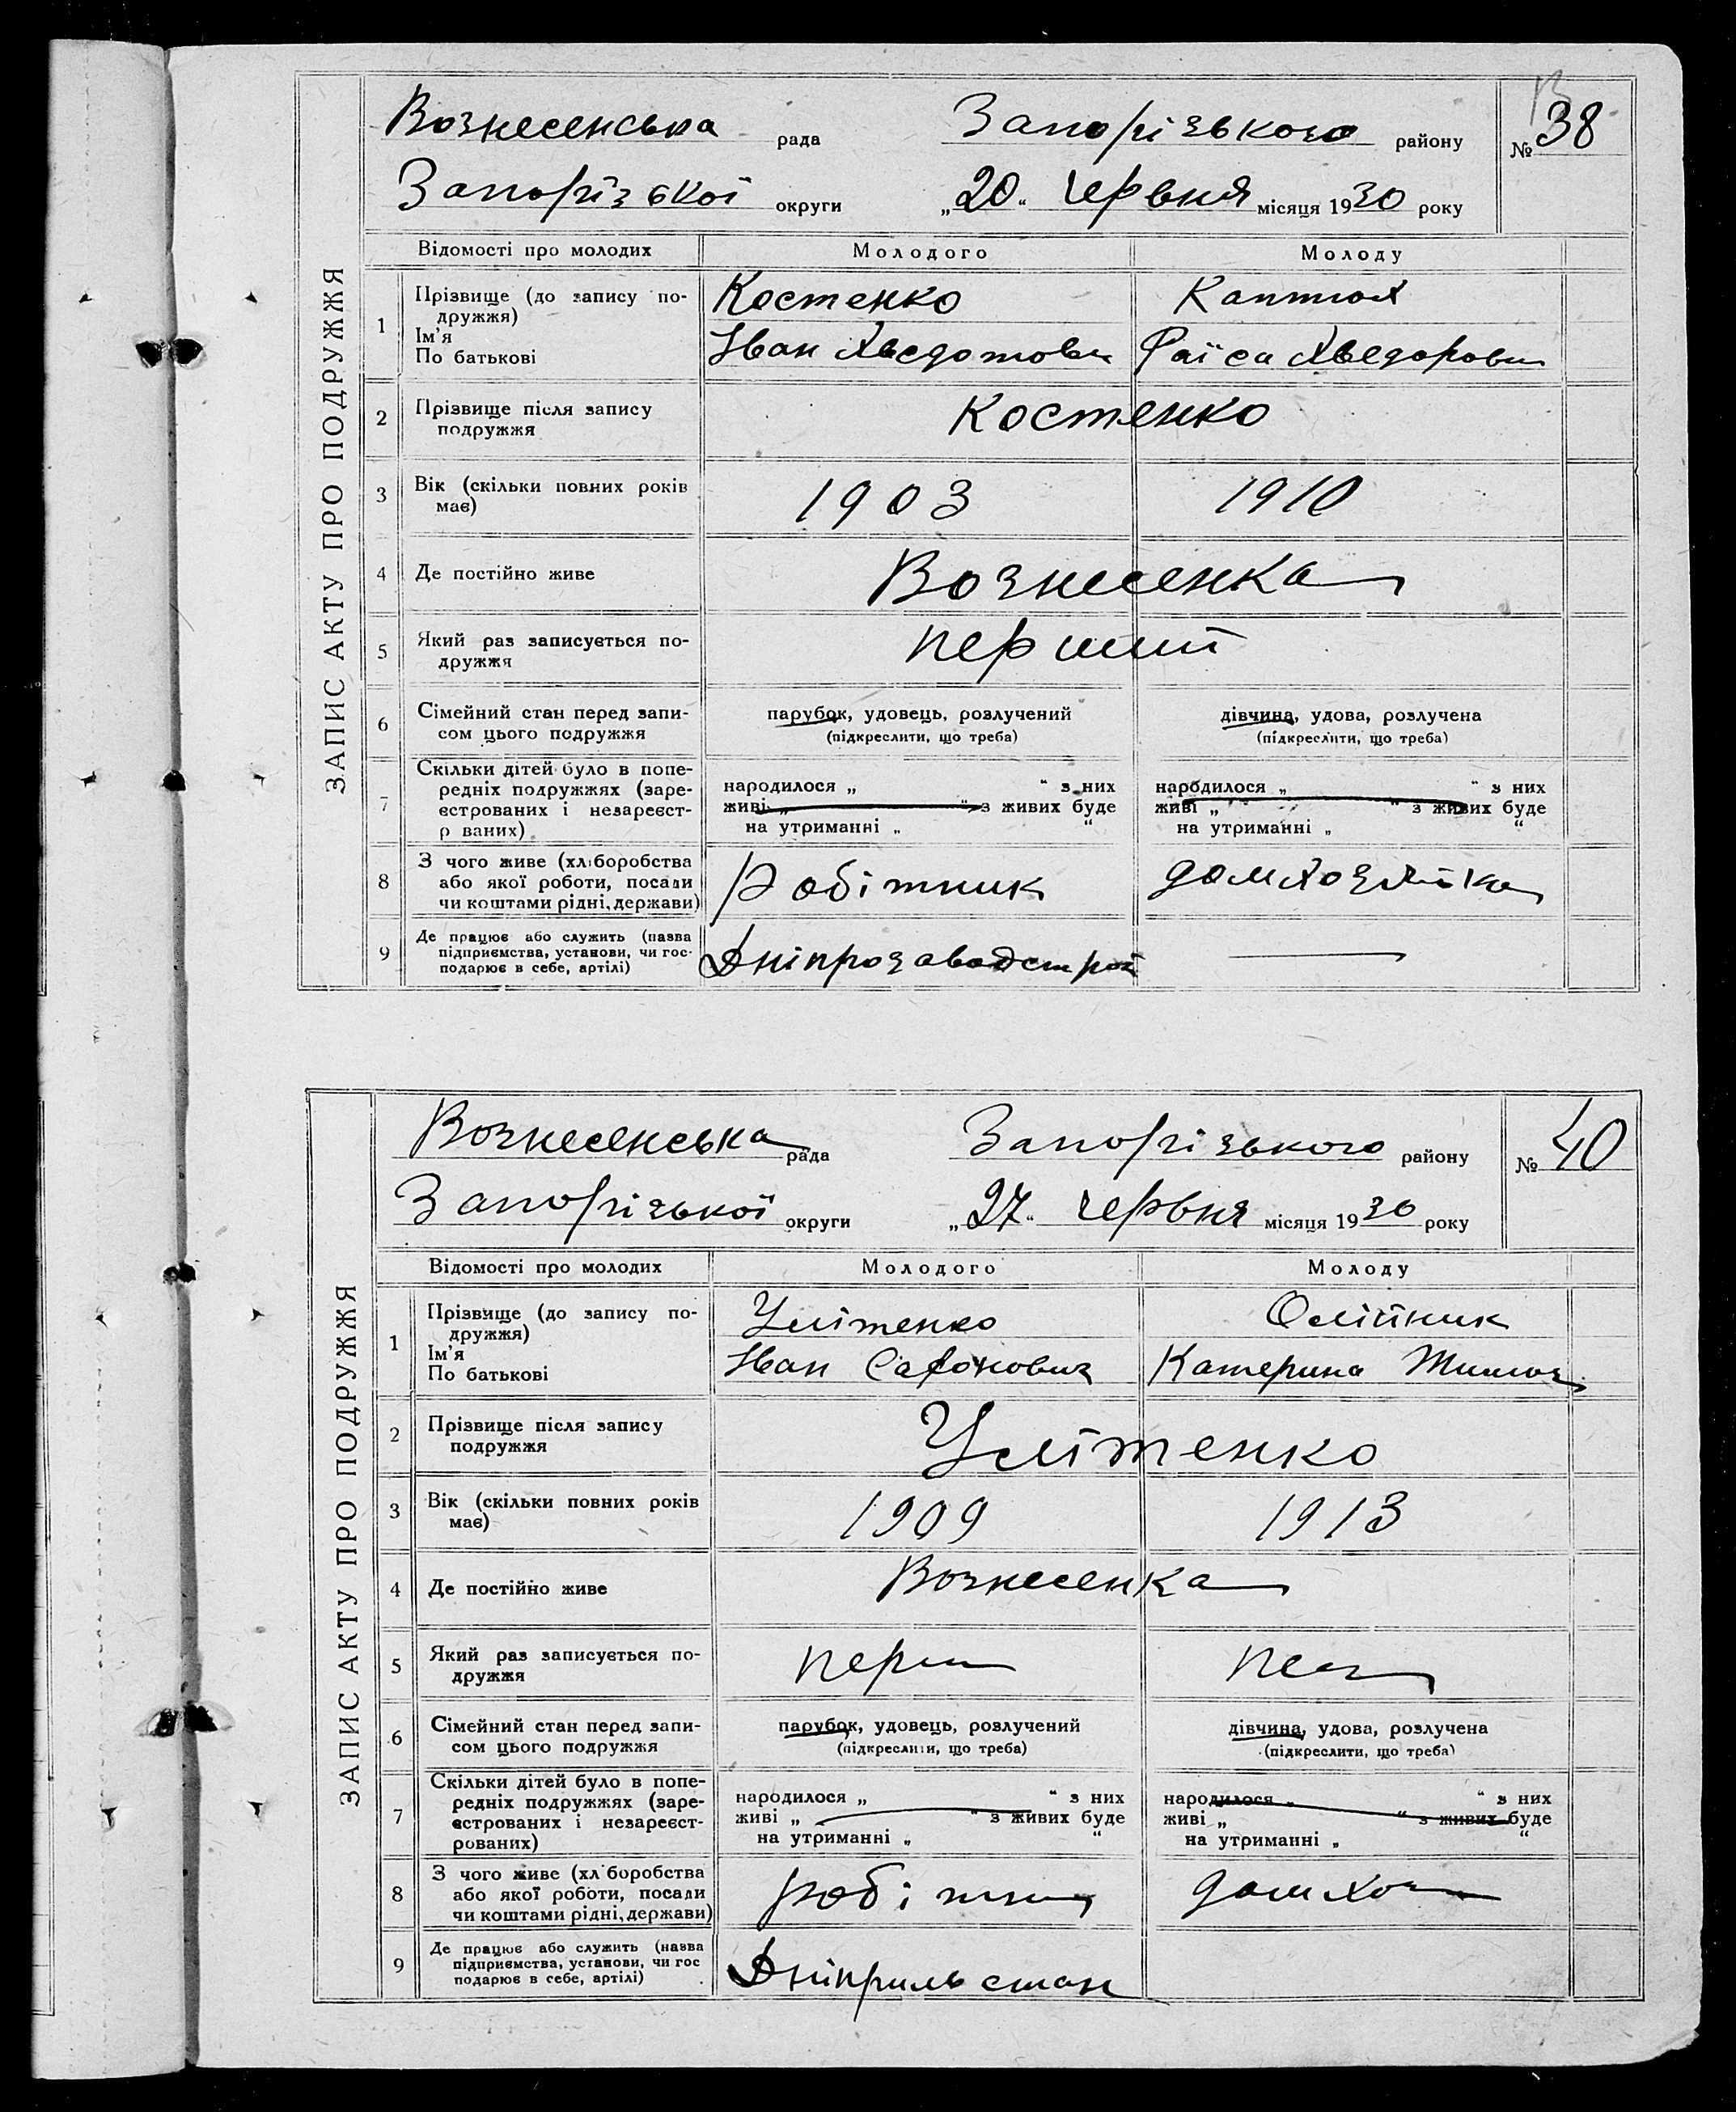 ЗАПИС АКТУ ПРО ПОДРУЖЖЯ
Вознесенська рада Запорізького району № 38
Запорізької округи „20“ червня місяця 1930 року
Відомості про молодих Молодого Молоду
1 Прізвище (до запису по-
дружжя) Костенко Каптюх
Ім'я
По батькові Іван Хведотович Раїса Хведоровн
2 Прізвище після запису
подружжя Костенко
3 Вік (скільки повних років
має) 1903 1910
4 Де постійно живе Вознесенка
5 Який раз записується по-
дружжя перший
6 Сімейний стан перед запи-
сом цього подружжя парубок, удовець, розлучений дівчина, удова, розлучена
(підкреслити, що треба) (підкреслити, що треба)
7 Скільки дітей було в попе-
редніх подружжях (заре-
єстрованих і незареєст-
р ваних)
народилося „ “ з них народилося „ “ з них
живі „ “ з живих буде живі „ “ з живих буде
на утриманні „ “ на утриманні „ “
8 З чого живе (хліборобства
або якої роботи, посади
чи коштами рідні, держави) Робітник домхозяйка
9 Де працює або служить (назва
підприємства, установи, чи гос-
подарює в себе, артілі) Дніпрозаводстрой —
ЗАПИС АКТУ ПРО ПОДРУЖЖЯ
Вознесенська рада Запорізького району № 40
Запорізької округи „27“ червня місяця 1930 року
Відомості про молодих Молодого Молоду
1 Прізвище (до запису по-
дружжя) Улітенко Олійник
Ім'я
По батькові Іван Сафонович Катерина
2 Прізвище після запису
подружжя Улітенко
3 Вік (скільки повних років
має) 1909 1913
4 Де постійно живе Вознесенка
5 Який раз записується по-
дружжя перш
6 Сімейний стан перед запи-
сом цього подружжя парубок, удовець, розлучений дівчина, удова, розлучена
(підкреслити, що треба) (підкреслити, що треба)
7 Скільки дітей було в попе-
редніх подружжях (заре-
єстрованих і незареєст-
рованих)
народилося „ “ з них народилося „ “ з них
живі „ “ з живих буде живі „ “ з живих буде
на утриманні „ “ на утриманні „ “
8 З чого живе (хл боробства
або якої роботи, посади
чи коштами рідні, держави) робітник домхоз
9 Де працює або служить (назва
підприємства, установи, чи гос
подарює в себе, артілі) Дніприльстан